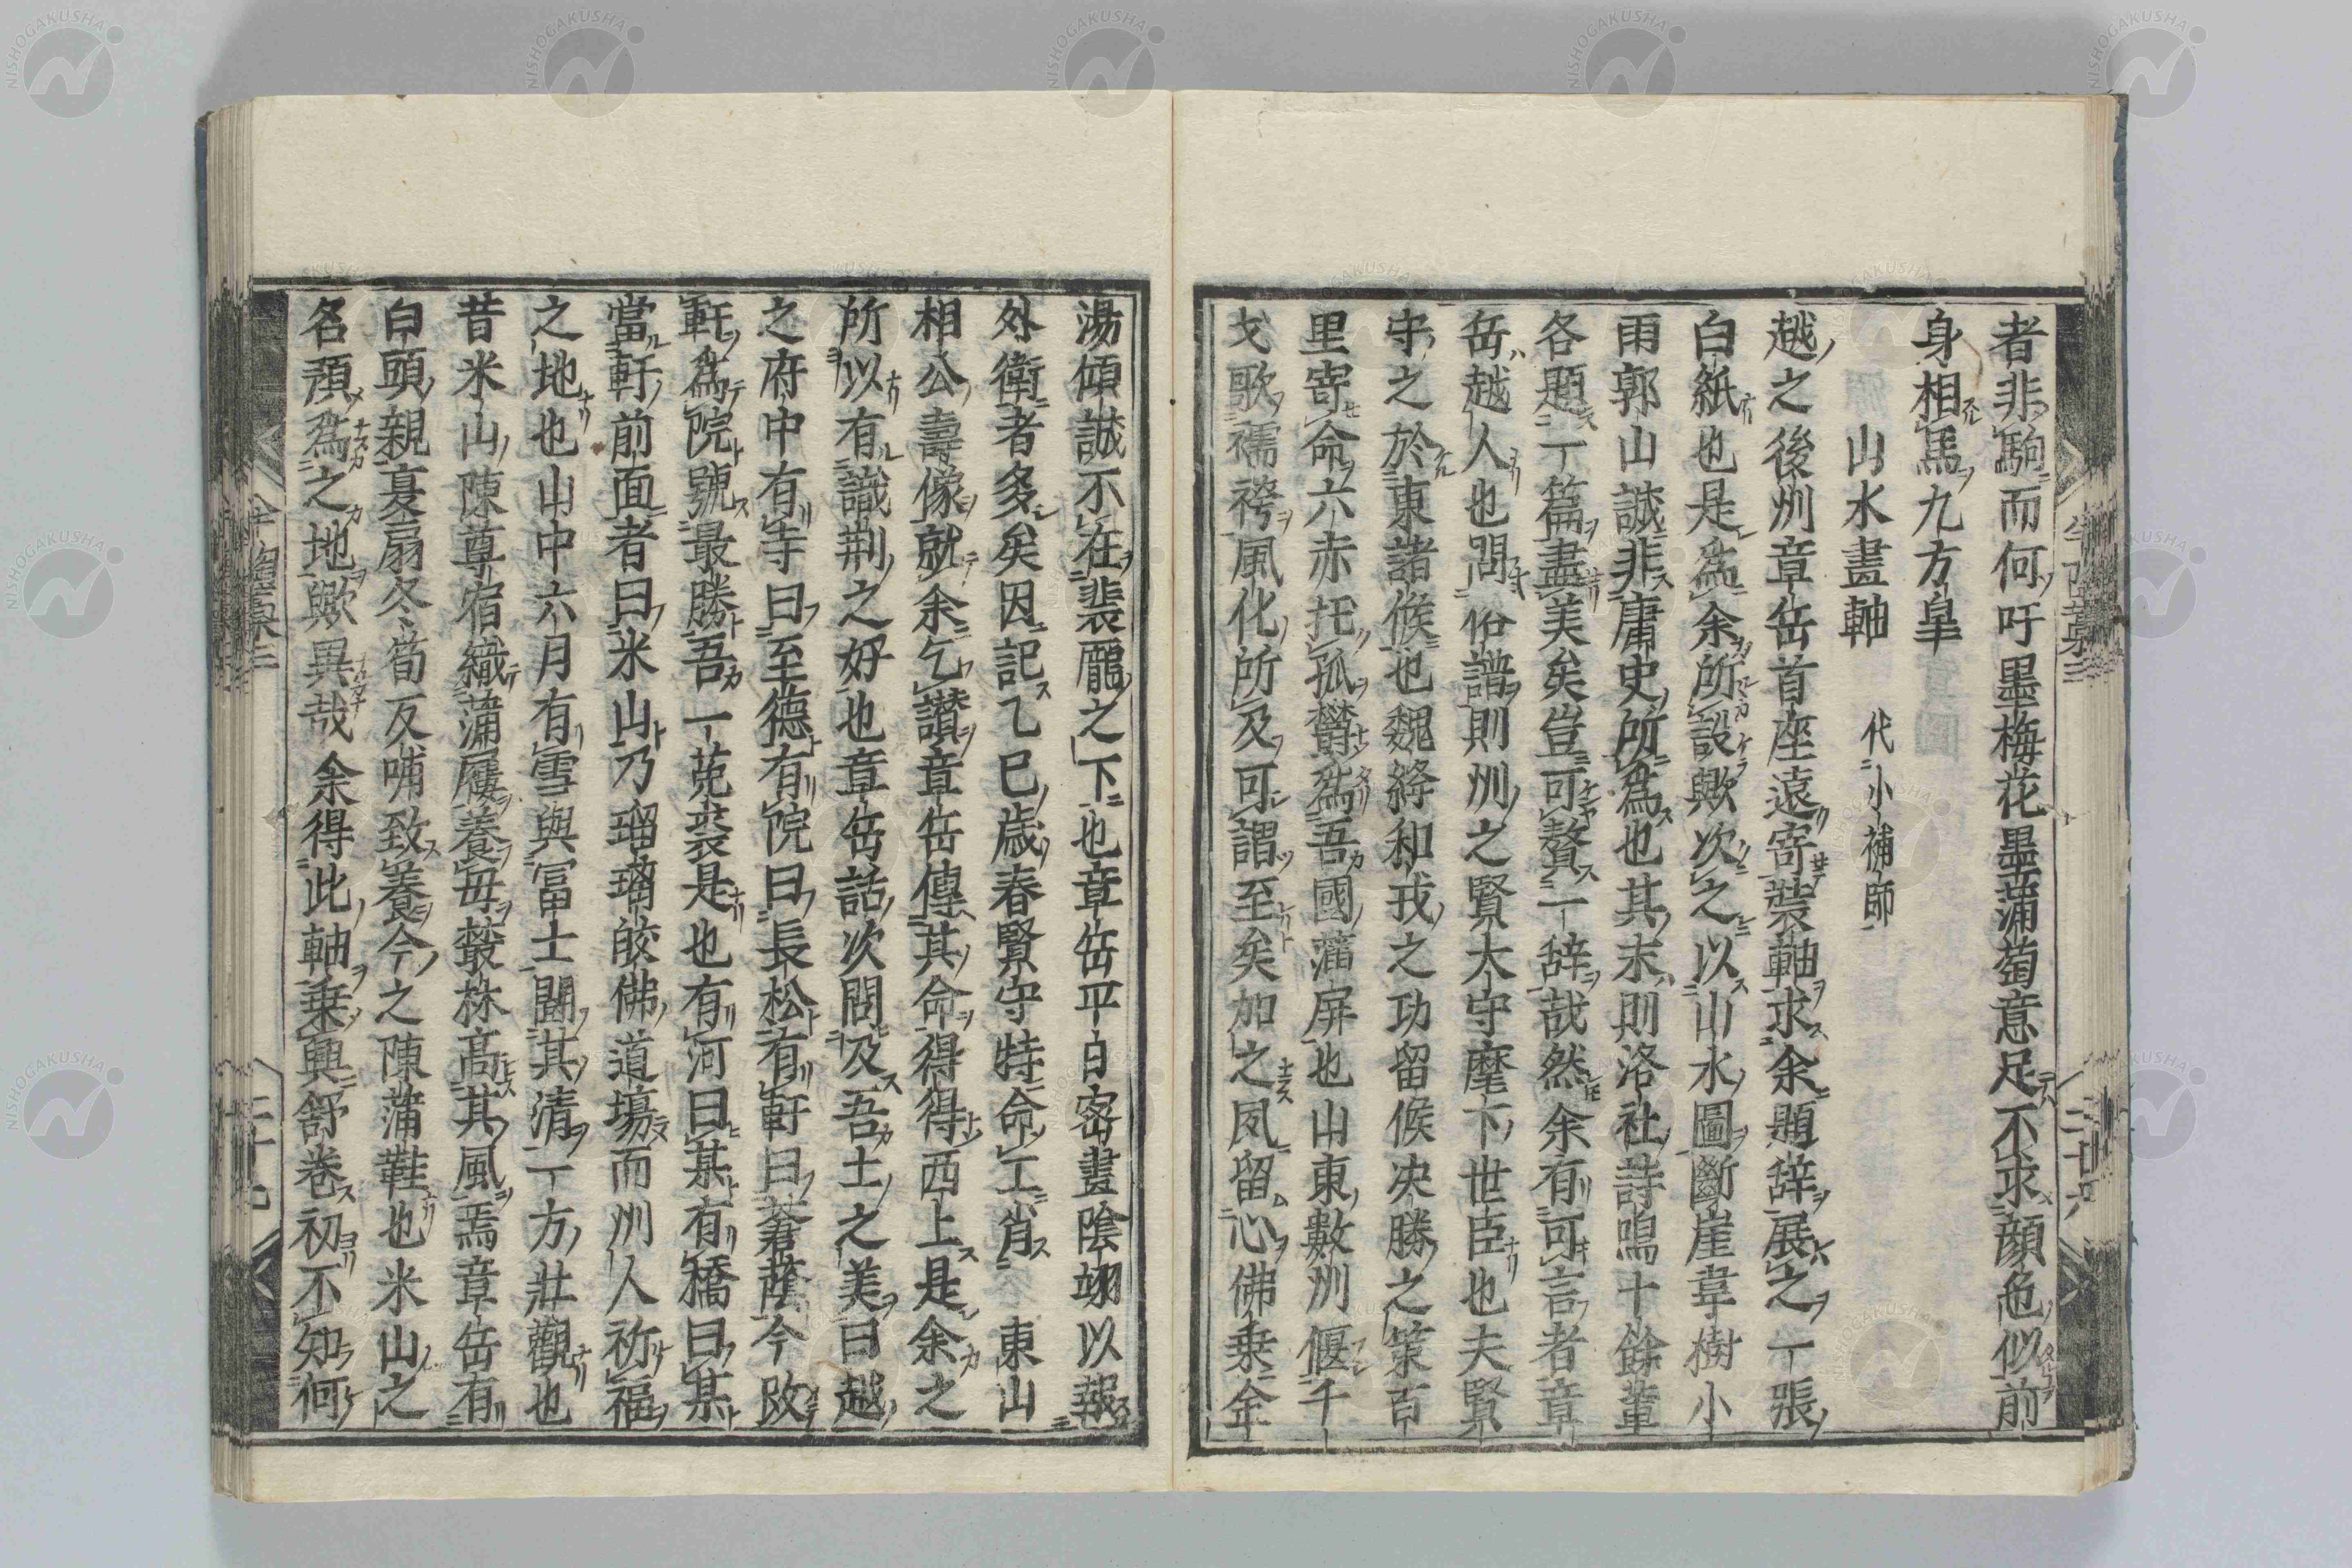 者非駒而何吁墨梅花墨蒲萄意足不求顔色似前
身相馬九方皐
山水畫軸 代小補師
越之後州章岳首座遠寄裝軸求余題辞展之一張
白紙也是爲余所設歟次之以山水圖斷崖韋樹小
雨郭山誠非庸史所爲也其末則洛社詩鳴十餘輩
各題一篇盡美矣豈可贅一辞哉然余有可言者章
岳越人也問俗譜則州之賢太守麾下世臣也夫賢
守之於東諸侯也魏絳和戎之功留侯决勝之策百
里寄命六赤托孤欝爲吾國藩屏也山東數州偃千
戈歌襦袴風化所及可謂至矣加之夙留心佛乗金
湯傾誠不在裴龐之下也章岳平日密畫陰翊以報
外衛者多矣因記乙巳歳春賢守特命工肖 東山
相公壽像就余乞讃章岳傳其命得得西上是余之
所以有識荆之好也章岳話次問及吾土之美曰越
之府中有寺曰至德有院曰長松有軒曰蒼蔭今改
軒爲院號最勝吾一菟裘是也有河曰某有橋曰某
當軒前面者曰米山乃瑠璃皎佛道場而州人祈福
之地也山中六月有雪與冨士鬭其清一方壯觀也
昔米山陳尊宿織蒲屨養母叢林高其風焉章岳有
白頭親夏扇冬笱反哺致養今之陳蒲鞋也米山之
名預爲之地歟異哉余得此軸乗興舒卷初不知何